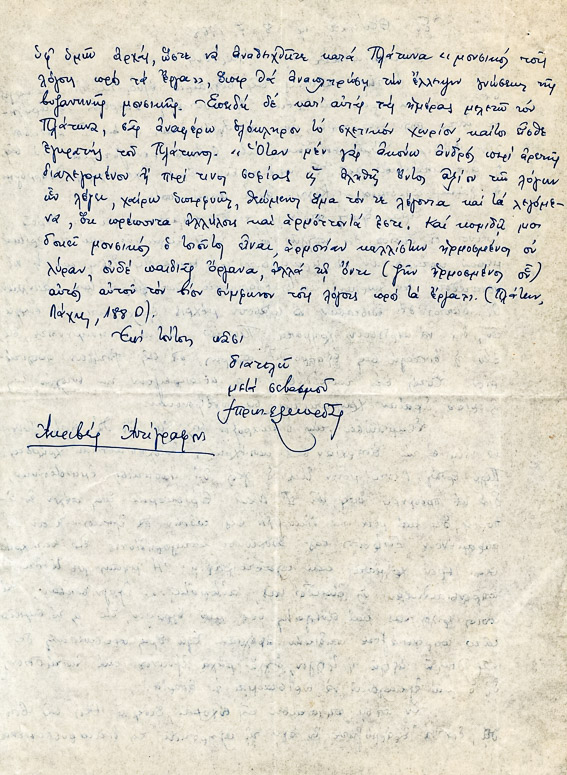 ὑφ' ὑμῶν ἀρχή, ὥστε νὰ ἀναδειχθῆτε κατὰ Πλάτωνα «μουσικὸς τοῖς
λόγοις πρὸς τὰ ἔργα», ὅπερ θὰ ἀναπληρώσῃ τὴν ἔλλειψιν γνώσεως τῆς
βυζαντινῆς μουσικῆς. - Ἐπειδὴ δὲ κατ' αὐτὰς τὰς ἡμέρας μελετῶ τὸν
Πλάτωνα, σᾶς ἀναφέρω ὁλόκληρον τὸ σχετικὸν χωρίον, καίτοι εἶσθε
ἐγκρατὴς τοῦ Πλάτωνος. «Ὅταν μὲν γὰρ ἀκούω ἀνδρὸς περὶ ἀρετῆς
διαλεγομένου ἢ περί τινος σοφίας ὡς ἀληθῶς ὄντος ἀξίου τῶν λόγων
ὧν λέγει, χαίρω ὑπερφυῶς, θεώμενος ἅμα τόν τε λέγοντα καὶ τὰ λεγόμε-
να, ὅτι πρέποντα ἀλλήλοις καὶ ἁρμόττοντά ἐστι. Καὶ κομιδῇ μοι
δοκεῖ μουσικὸς ὁ τοιοῦτος εἶναι, ἁρμονίαν καλλίστην ἡρμοσμένος οὐ
λύραν, οὐδὲ παιδιᾶς ὄργανα, ἀλλὰ τῷ ὄντι (ζῆν ἡρμοσμένος οὗ)
αὐτὸς αὑτοῦ τὸν βίον σύμφωνον τοῖς λόγοις πρὸς τὰ ἔργα». (Πλάτων,
Λάχης, 188 D).
Ἐπὶ τούτοις πᾶσι
διατελῶ
μετὰ σεβασμοῦ
Ἀκριβὲς Ἀντίγραφον